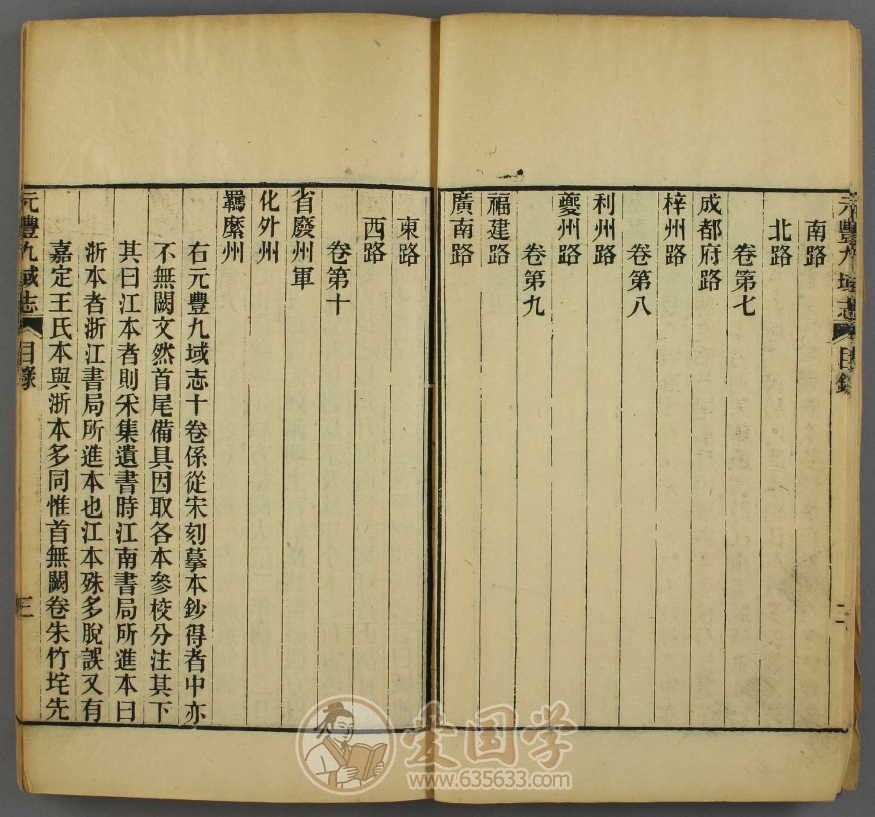 元豐九域志 目錄 二
南路
北路
卷第七
成都府路
梓州路
利州路
卷第八
夔州路
卷第九
福建路
廣南路
東路
西路
卷第十
省廢州軍
化外州
羈縻州
右元豐九域志十卷係從宋刻摹本鈔得者中亦
不無闕文然首尾備具因取各本參校分注其下
其曰江本者則采集遺書時江南書局所進本曰
浙本者浙江書局所進本也江本殊多脫誤又有
嘉定王氏本與浙本多同惟首無闕卷朱竹垞先
元豐九域志 目錄 三
爱国学
www.635633.com